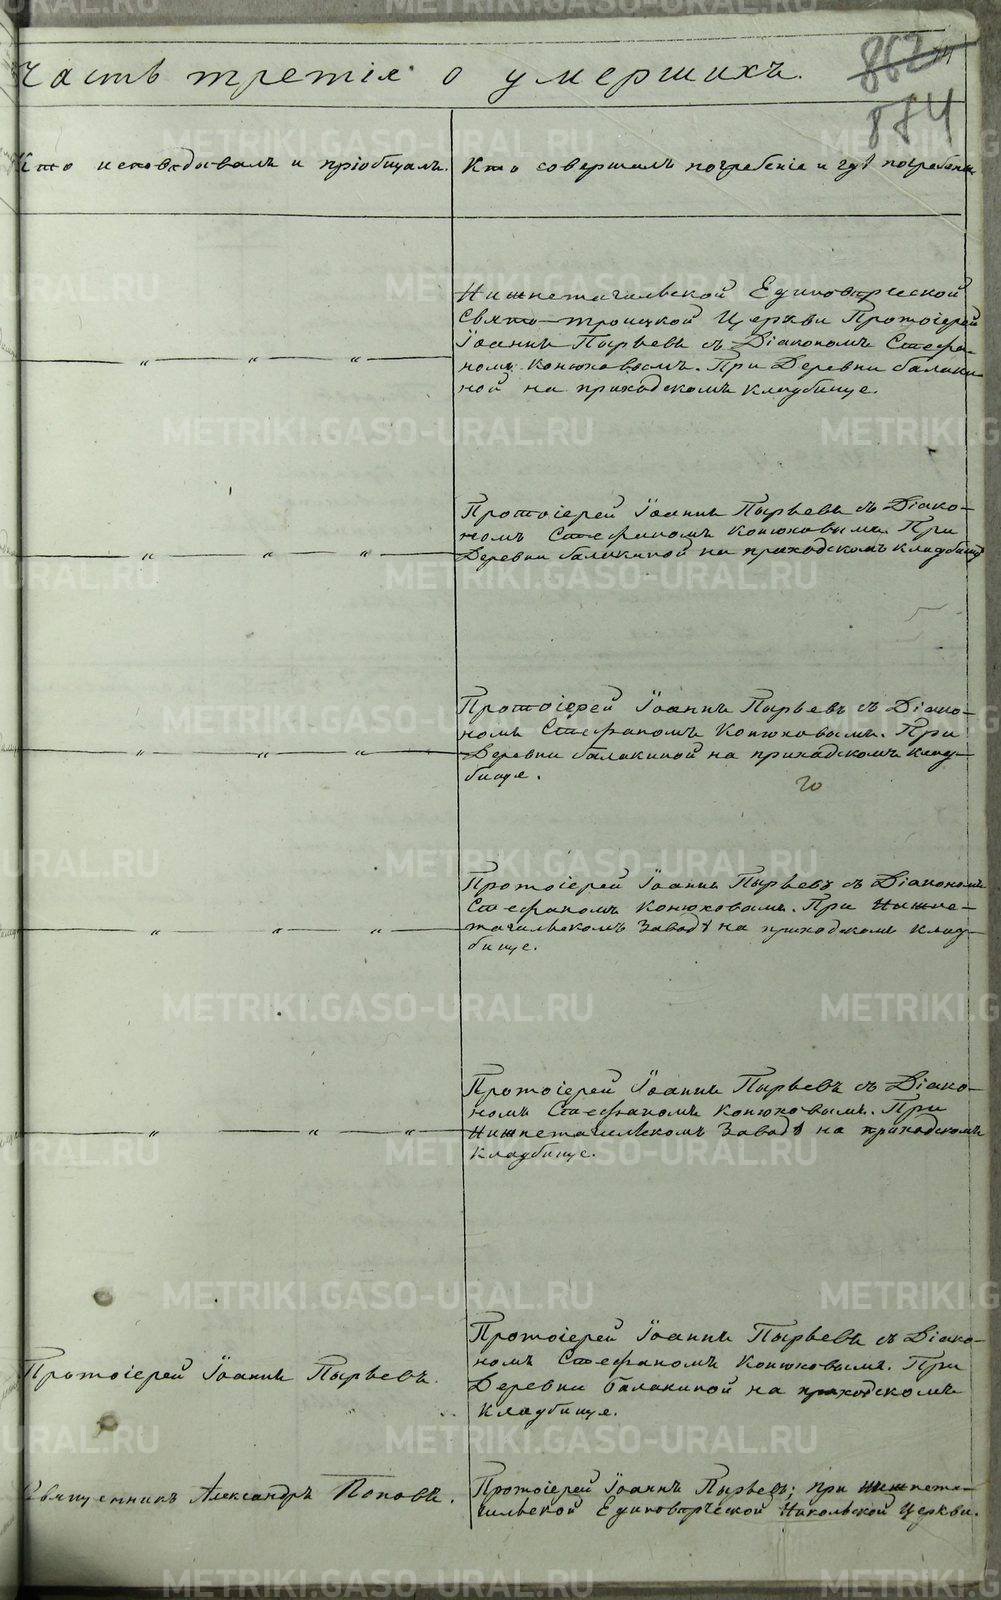 Часть третія о умершихъ.
862
874
Кто исповѣдывалъ и пріобщалъ.
Кто совершалъ погребеніе и гдѣ погребены
Нижнетагильской Единовѣрческой
Свято-Троицкой Церкви Протоіерей
Іоаннъ Пырьевъ съ Діакономъ Стефа-
номъ Конюховымъ. При Деревни Балаки-
ной на приходскомъ кладбище.
Протоіерей Іоаннъ Пырьевъ съ Діако-
номъ Стефаномъ Конюховымъ. При
Деревни Балакиной на приходскомъ кладбище
Протоіерей Іоаннъ Пырьевъ съ Діако-
номъ Стефаномъ Конюховымъ. При
Деревни Балакиной на приходскомъ клад-
бище.
Протоіерей Іоаннъ Пырьевъ съ Діакономъ
Стефаномъ Конюховымъ. При Нижне-
тагильскомъ Заводѣ на приходскомъ клад-
бище.
Протоіерей Іоаннъ Пырьевъ съ Діако-
номъ Стефаномъ Конюховымъ. При
Нижнетагильскомъ Заводѣ на приходскомъ
кладбище.
Протоіерей Іоаннъ Пырьевъ.
Протоіерей Іоаннъ Пырьевъ съ Діако-
номъ Стефаномъ Конюховымъ. При
Деревни Балакиной на приходскомъ
кладбище.
Священникъ Александръ Поповъ.
Протоіерей Іоаннъ Пырьевъ; при Нижнета-
гильской Единовѣрческой Никольской Церкви.
METRIKI.GASO-URAL.RU